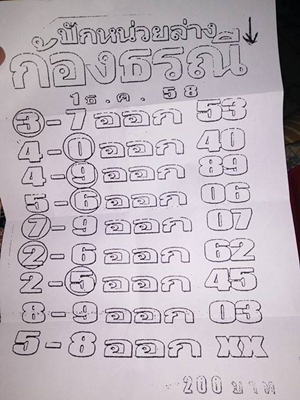 ปักหน่วยล่าง
ก้องธรณี
1 ธ.ค. 58
3-7 ออก 53
4-0 ออก 40
4-9 ออก 89
5-6 ออก 06
7-9 ออก 07
2-6 ออก 62
2-5 ออก 45
8-9 ออก 03
5-8 ออก xx
200 บาท